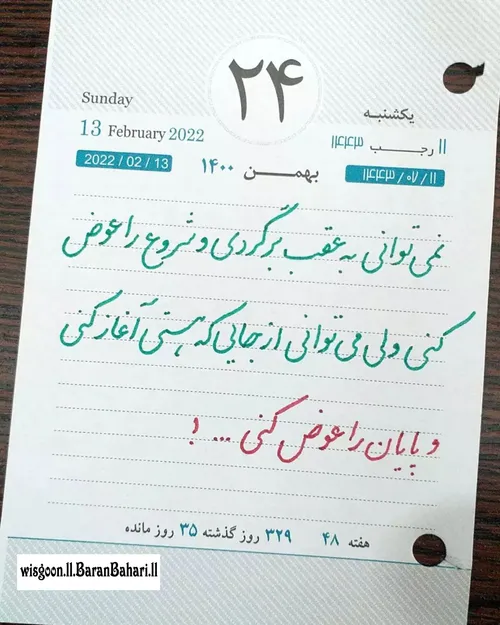 ۲۴
Sunday
یکشنبه
13 February 2022
۱۱ رجب ۱۴۴۳
2022 / 02 / 13
بهمن ۱۴۰۰
۱۴۴۳ / ۰۷ / ۱۱
نمی‌توانی به عقب برگردی و شروع را عوض
کنی ولی می‌توانی از جایی که هستی آغاز کنی
و پایان را عوض کنی ... !
هفته ۴۸ ۳۲۹ روز گذشته ۳۵ روز مانده
wisgoon.ll.BaranBahari.ll